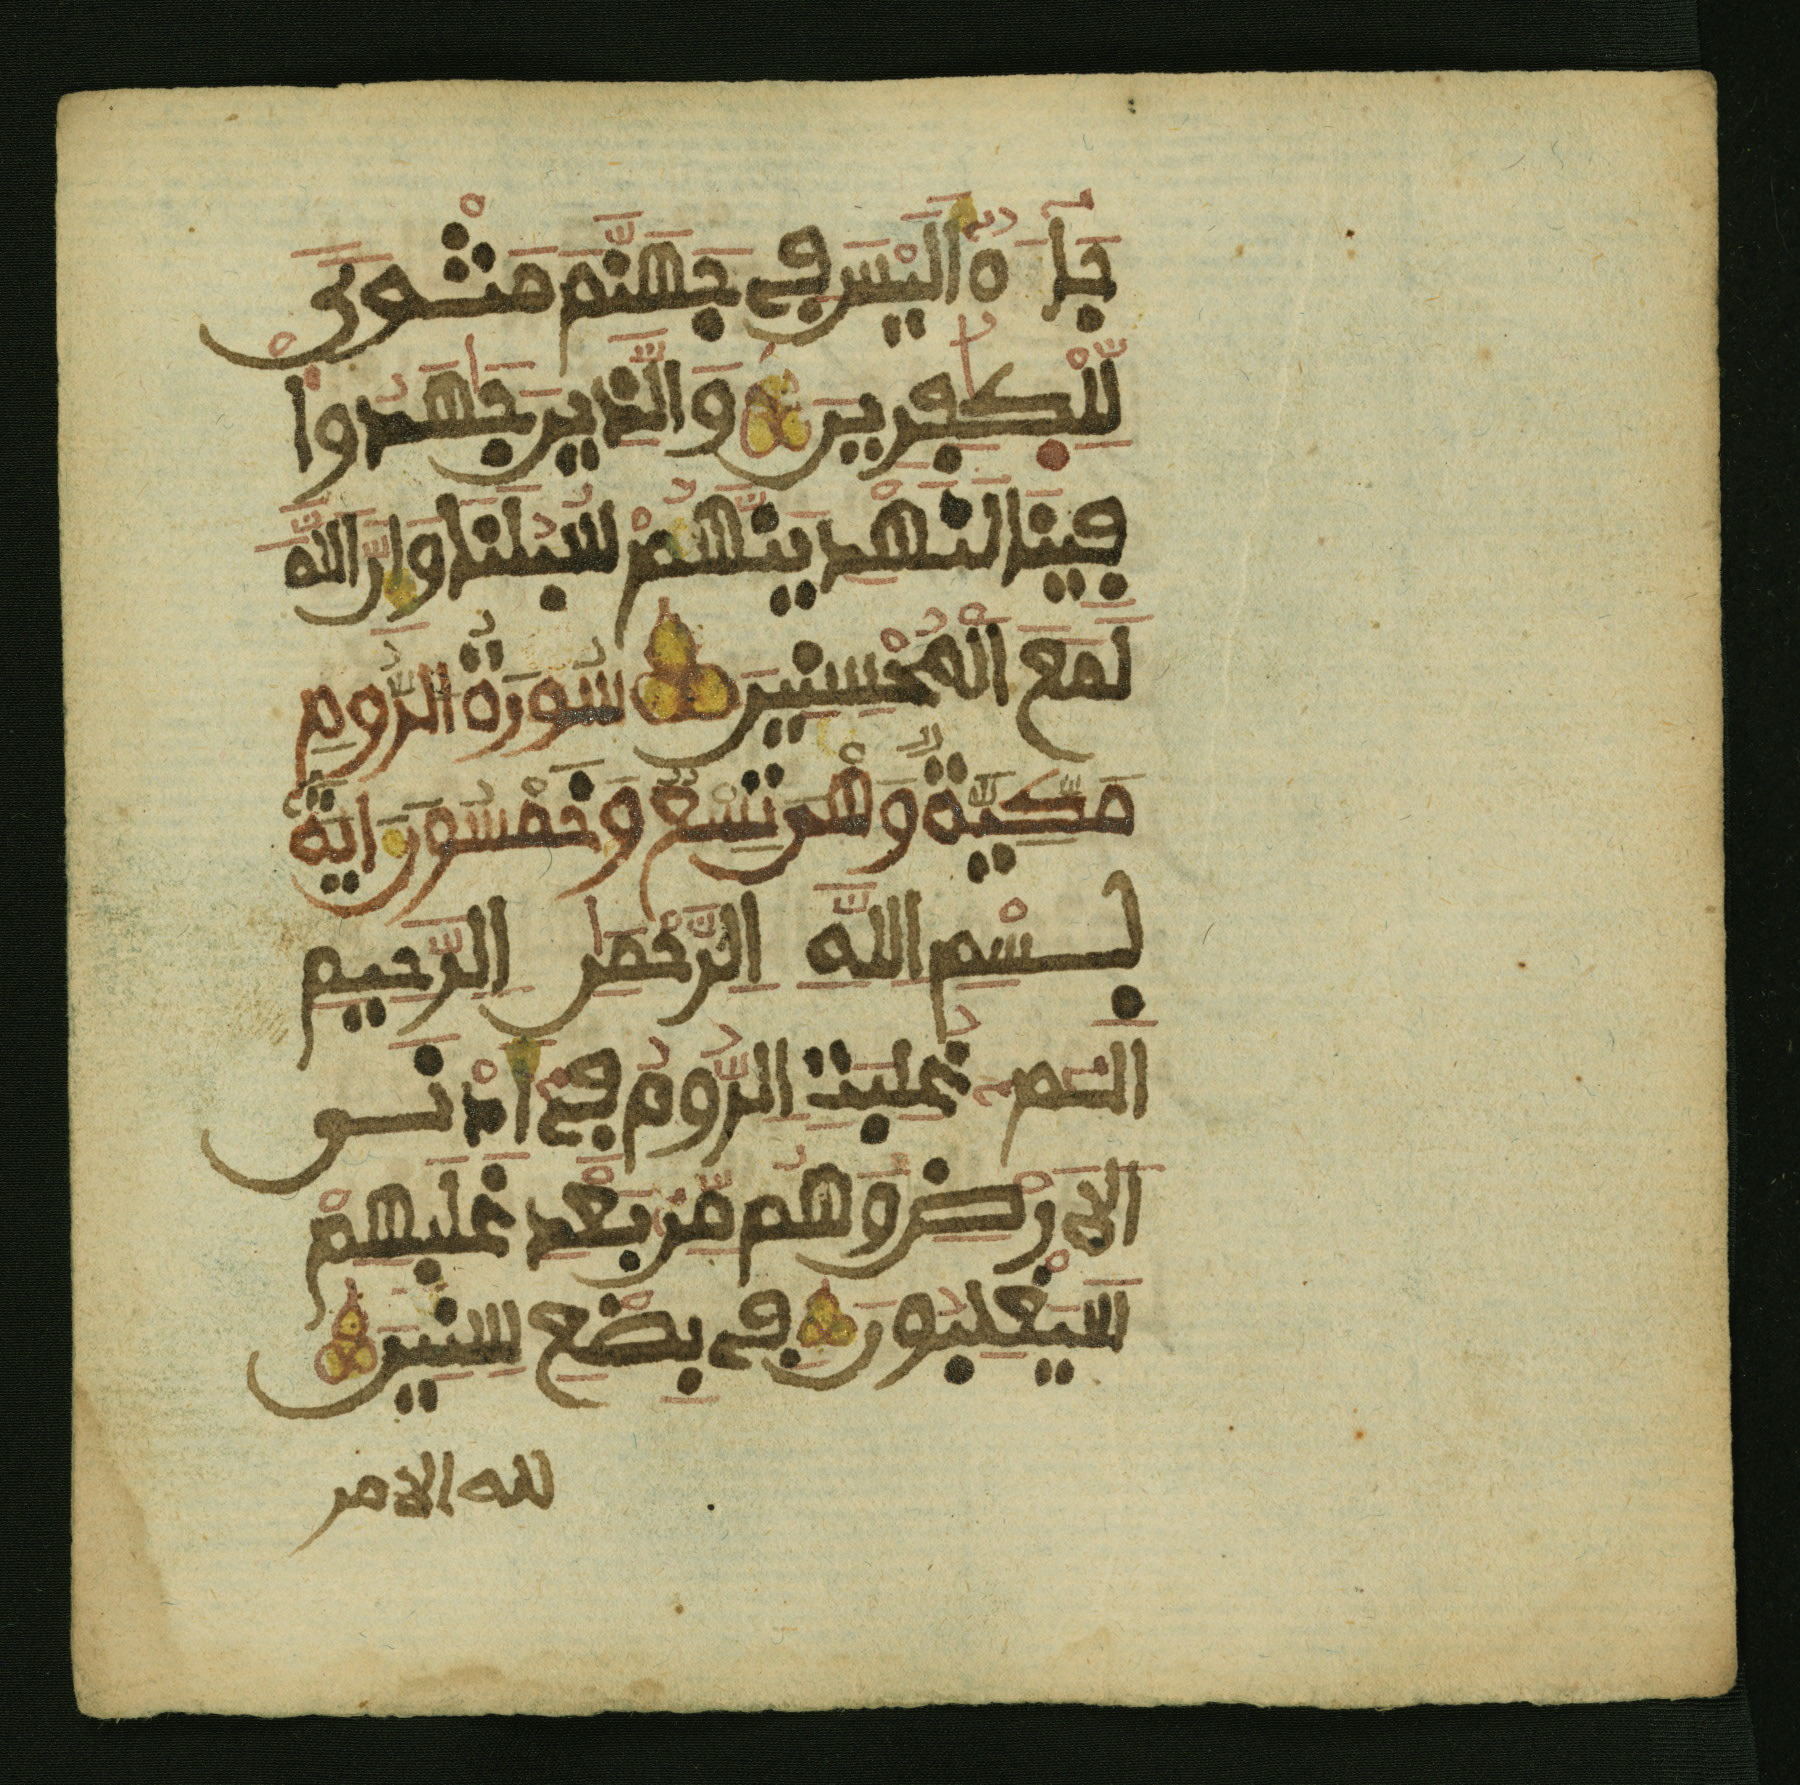 جَآءَهُۥٓ أَلَيْسَ فِے جَهَنَّمَ مَثْوًى
لِّلْكَٰفِرِينَ وَالَّذِينَ جَٰهَدُواْ
فِينَا لَنَهْدِيَنَّهُمْ سُبُلَنَا وَإِنَّ اللَّهَ
لَمَعَ الْمُحْسِنِينَ سُورَةُ الرُّومِ
مَكِّيَّةٌ وَهْىَ تِسْعٌ وَخَمْسُونَ ايَةً
بِسْمِ اللَّهِ الرَّحْمَٰنِ الرَّحِيمِ
الٓمٓ غُلِبَتِ الرُّومُ فِےٓ أَدْنَى
الَارْضِ وَهُم مِّنۢ بَعْدِ غَلَبِهِمْ
سَيَغْلِبُونَ فِے بِضْعِ سِنِينَ
لله الامر